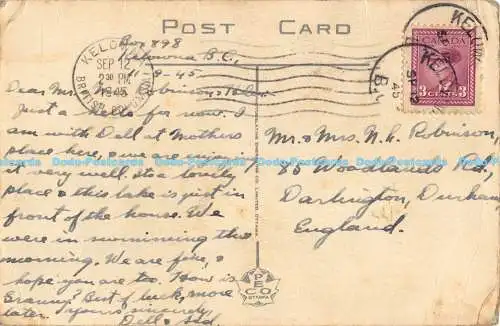 POST CARD
Box 898
Kelowna B.C.,
11-9-45.
KELOWNA
SEP 12
2 30 PM
1945
BRITISH COLUMBIA
CANADA
3 CENTS 3
Dear Mr & Mrs Robinson,
Just a hello for now. I
am with Dell at Mothers
place here, and enjoying
it very well. Its a lovely
place & this lake is just in
front of the house. We
were in swimming this
morning. We are fine, &
hope you are too. How is
Granny? Best of luck, more
later. Yours sincerely
Dell & Sid.
Mr. & Mrs. N. L. Robinson,
85 Woodlands Rd,
Darlington, Durham
England.
PECO
OTTAWA
Dodo-Postcards Dodo-Postcards Dodo-Postcards Dodo-Postcards Dodo-Postcards